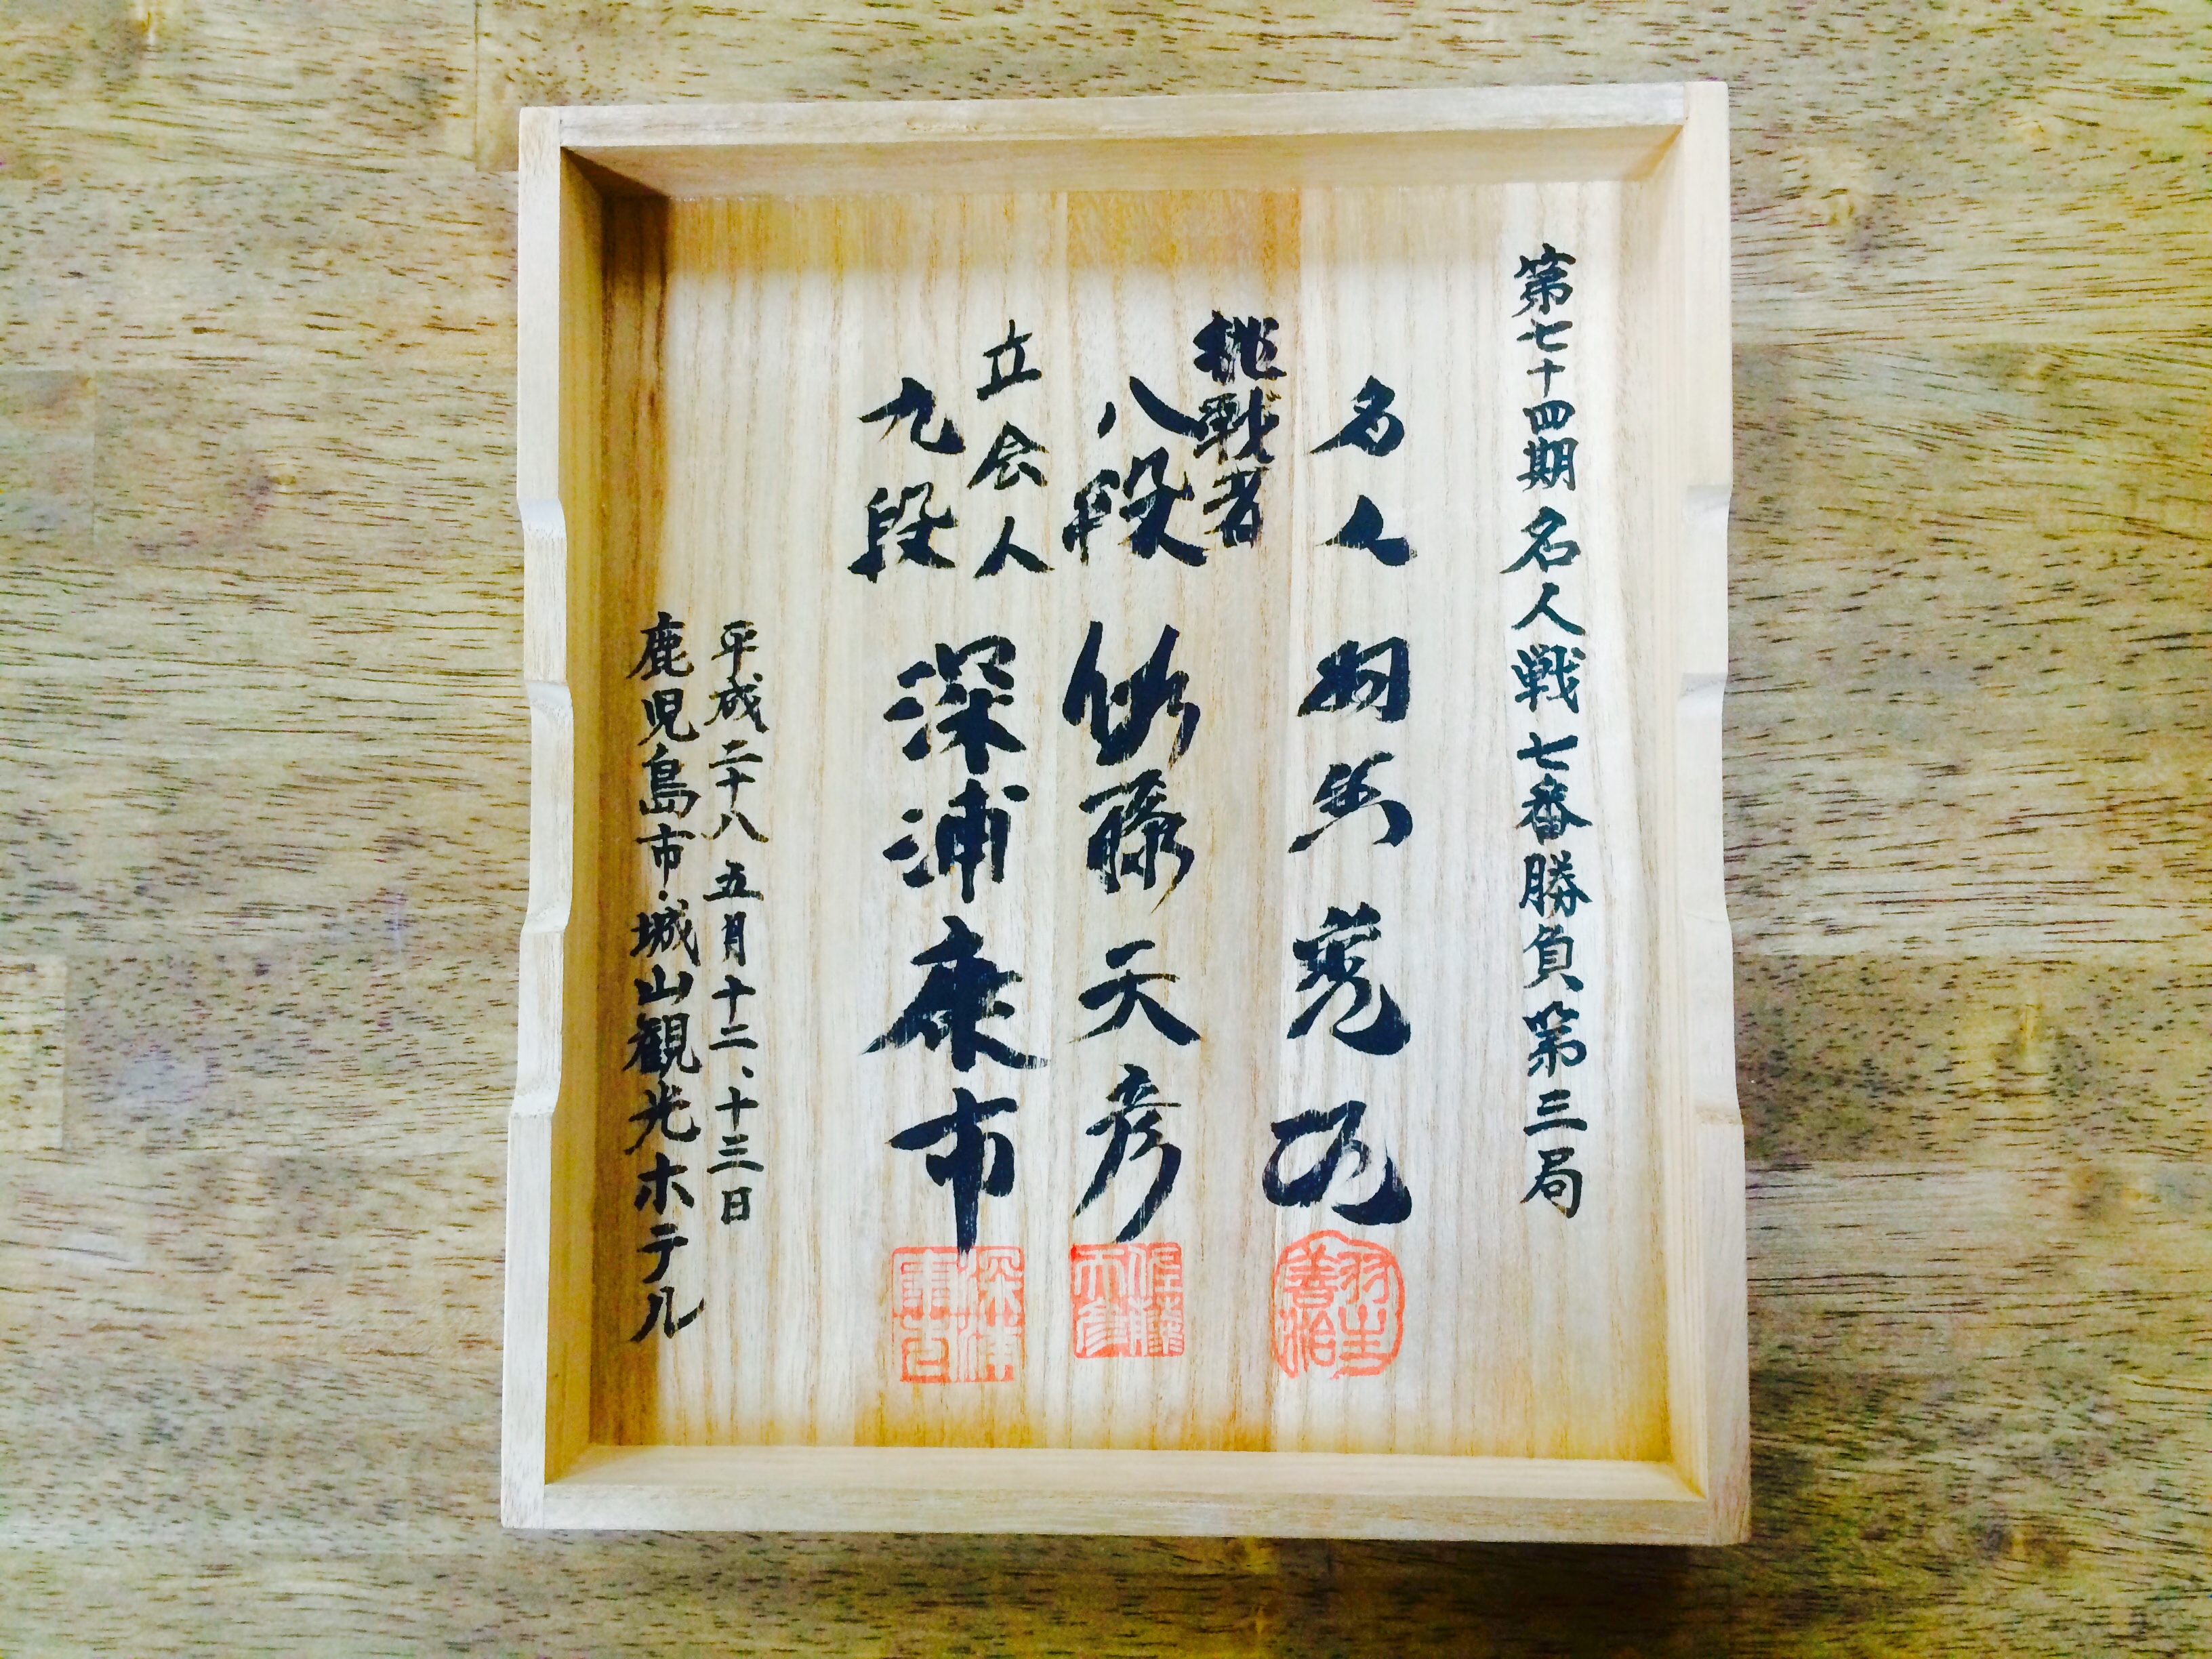 第七十四期 名人戦 七番勝負 第三局
名人 羽生善治
挑戦者
八段 佐藤天彦
立会人
九段 深浦康市
平成二十八 五月十二、十三日
鹿児島市・城山観光ホテル
羽生善治
佐藤天彦
深浦康市